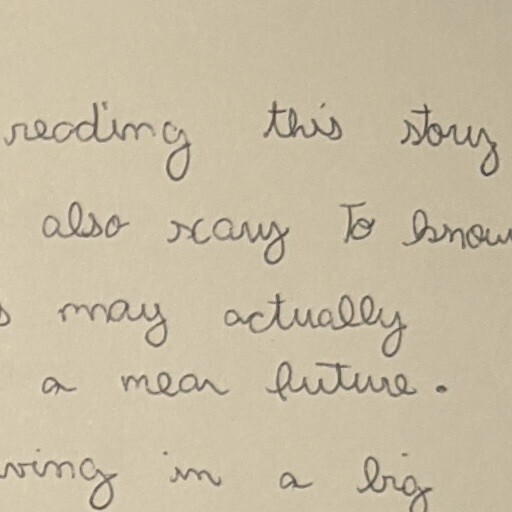 reading this story
also scary to know
may actually
a near future.
in a big